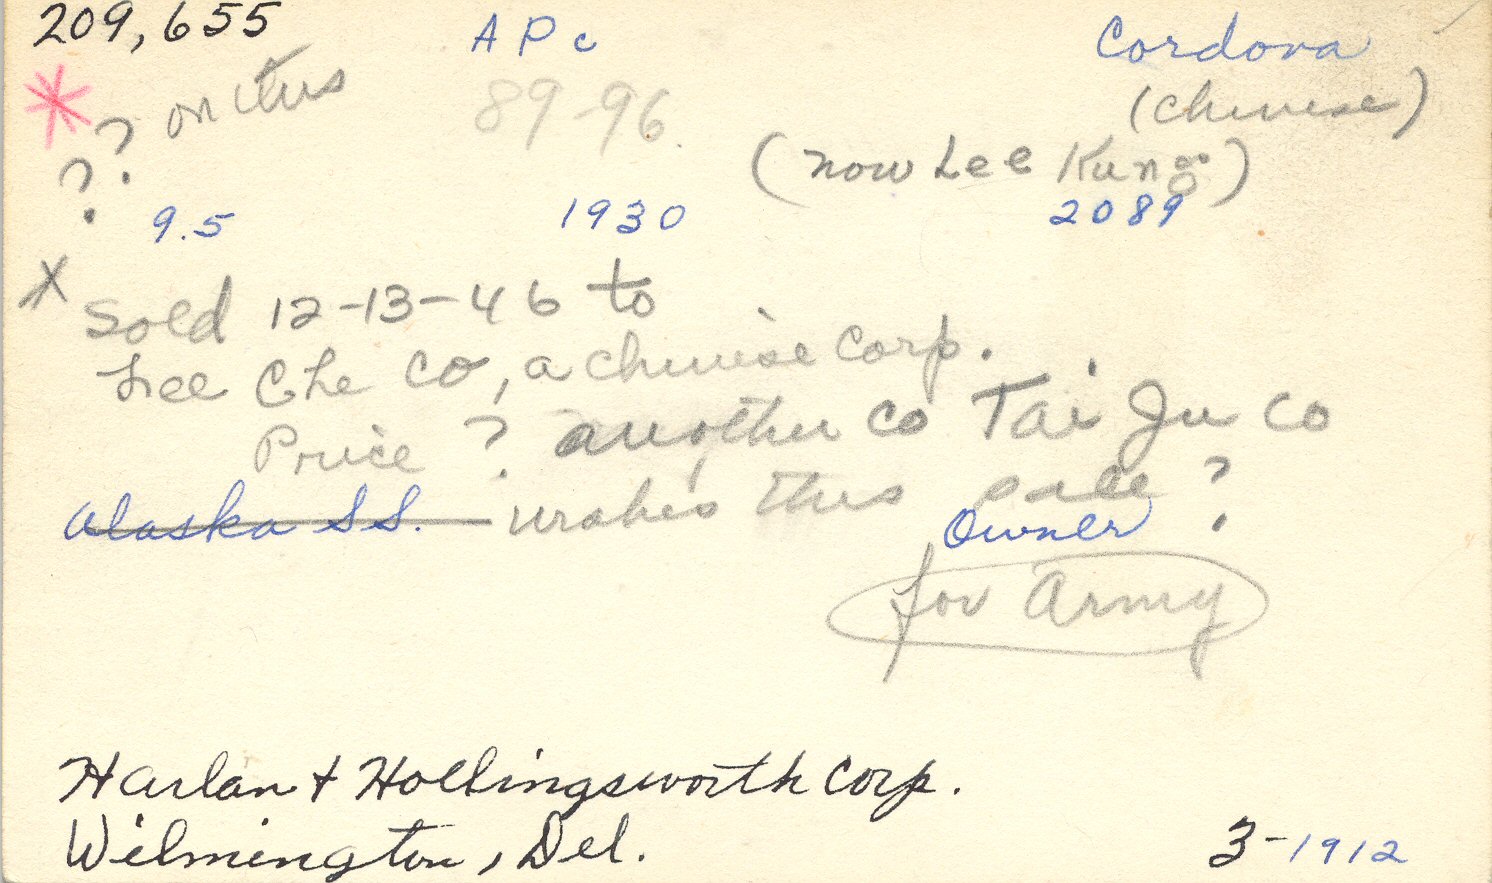 209,655 APc Cordova
* ? on this 89-96. (Chinese)
? (now Lee Kung)
9.5 1930 2089
x Sold 12-13-46 to
Lee Che Co, a Chinese Corp.
Price ? another co Tai Ju Co
Alaska S.S. makes this sale ?
Owner
for Army
Harlan + Hollingsworth Corp.
Wilmington, Del. 3-1912